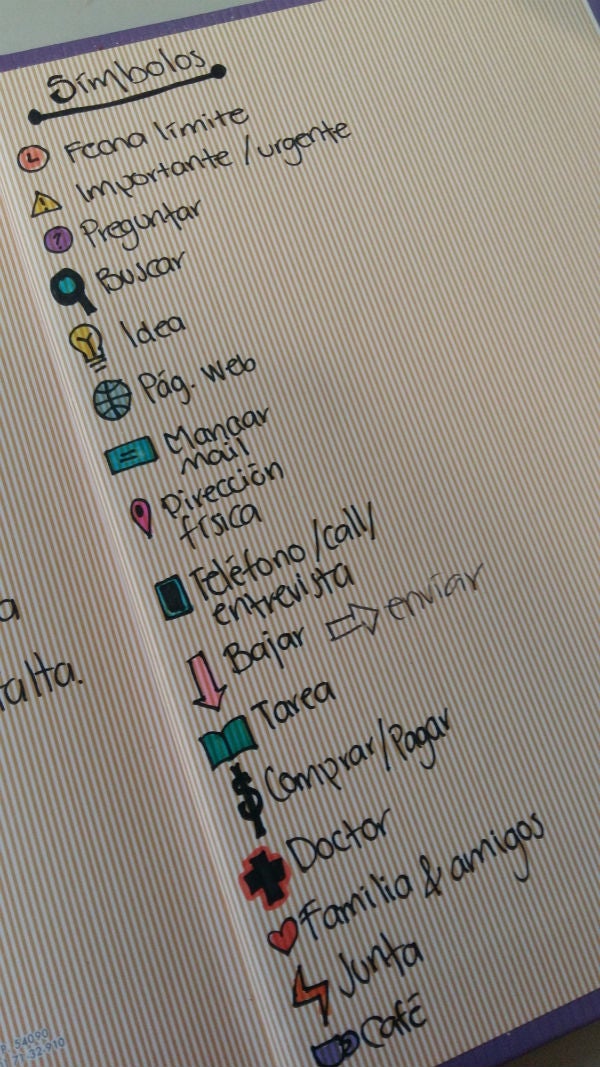 Símbolos
Fecha límite
Importante/urgente
? Preguntar
Buscar
Idea
Pág. web
Mandar
mail
Dirección
física
Teléfono/call/
entrevista
Bajar enviar
Tarea
$ Comprar/Pagar
Doctor
Familia & amigos
Junta
Café
a
falta.
P. 54090
71-32-910